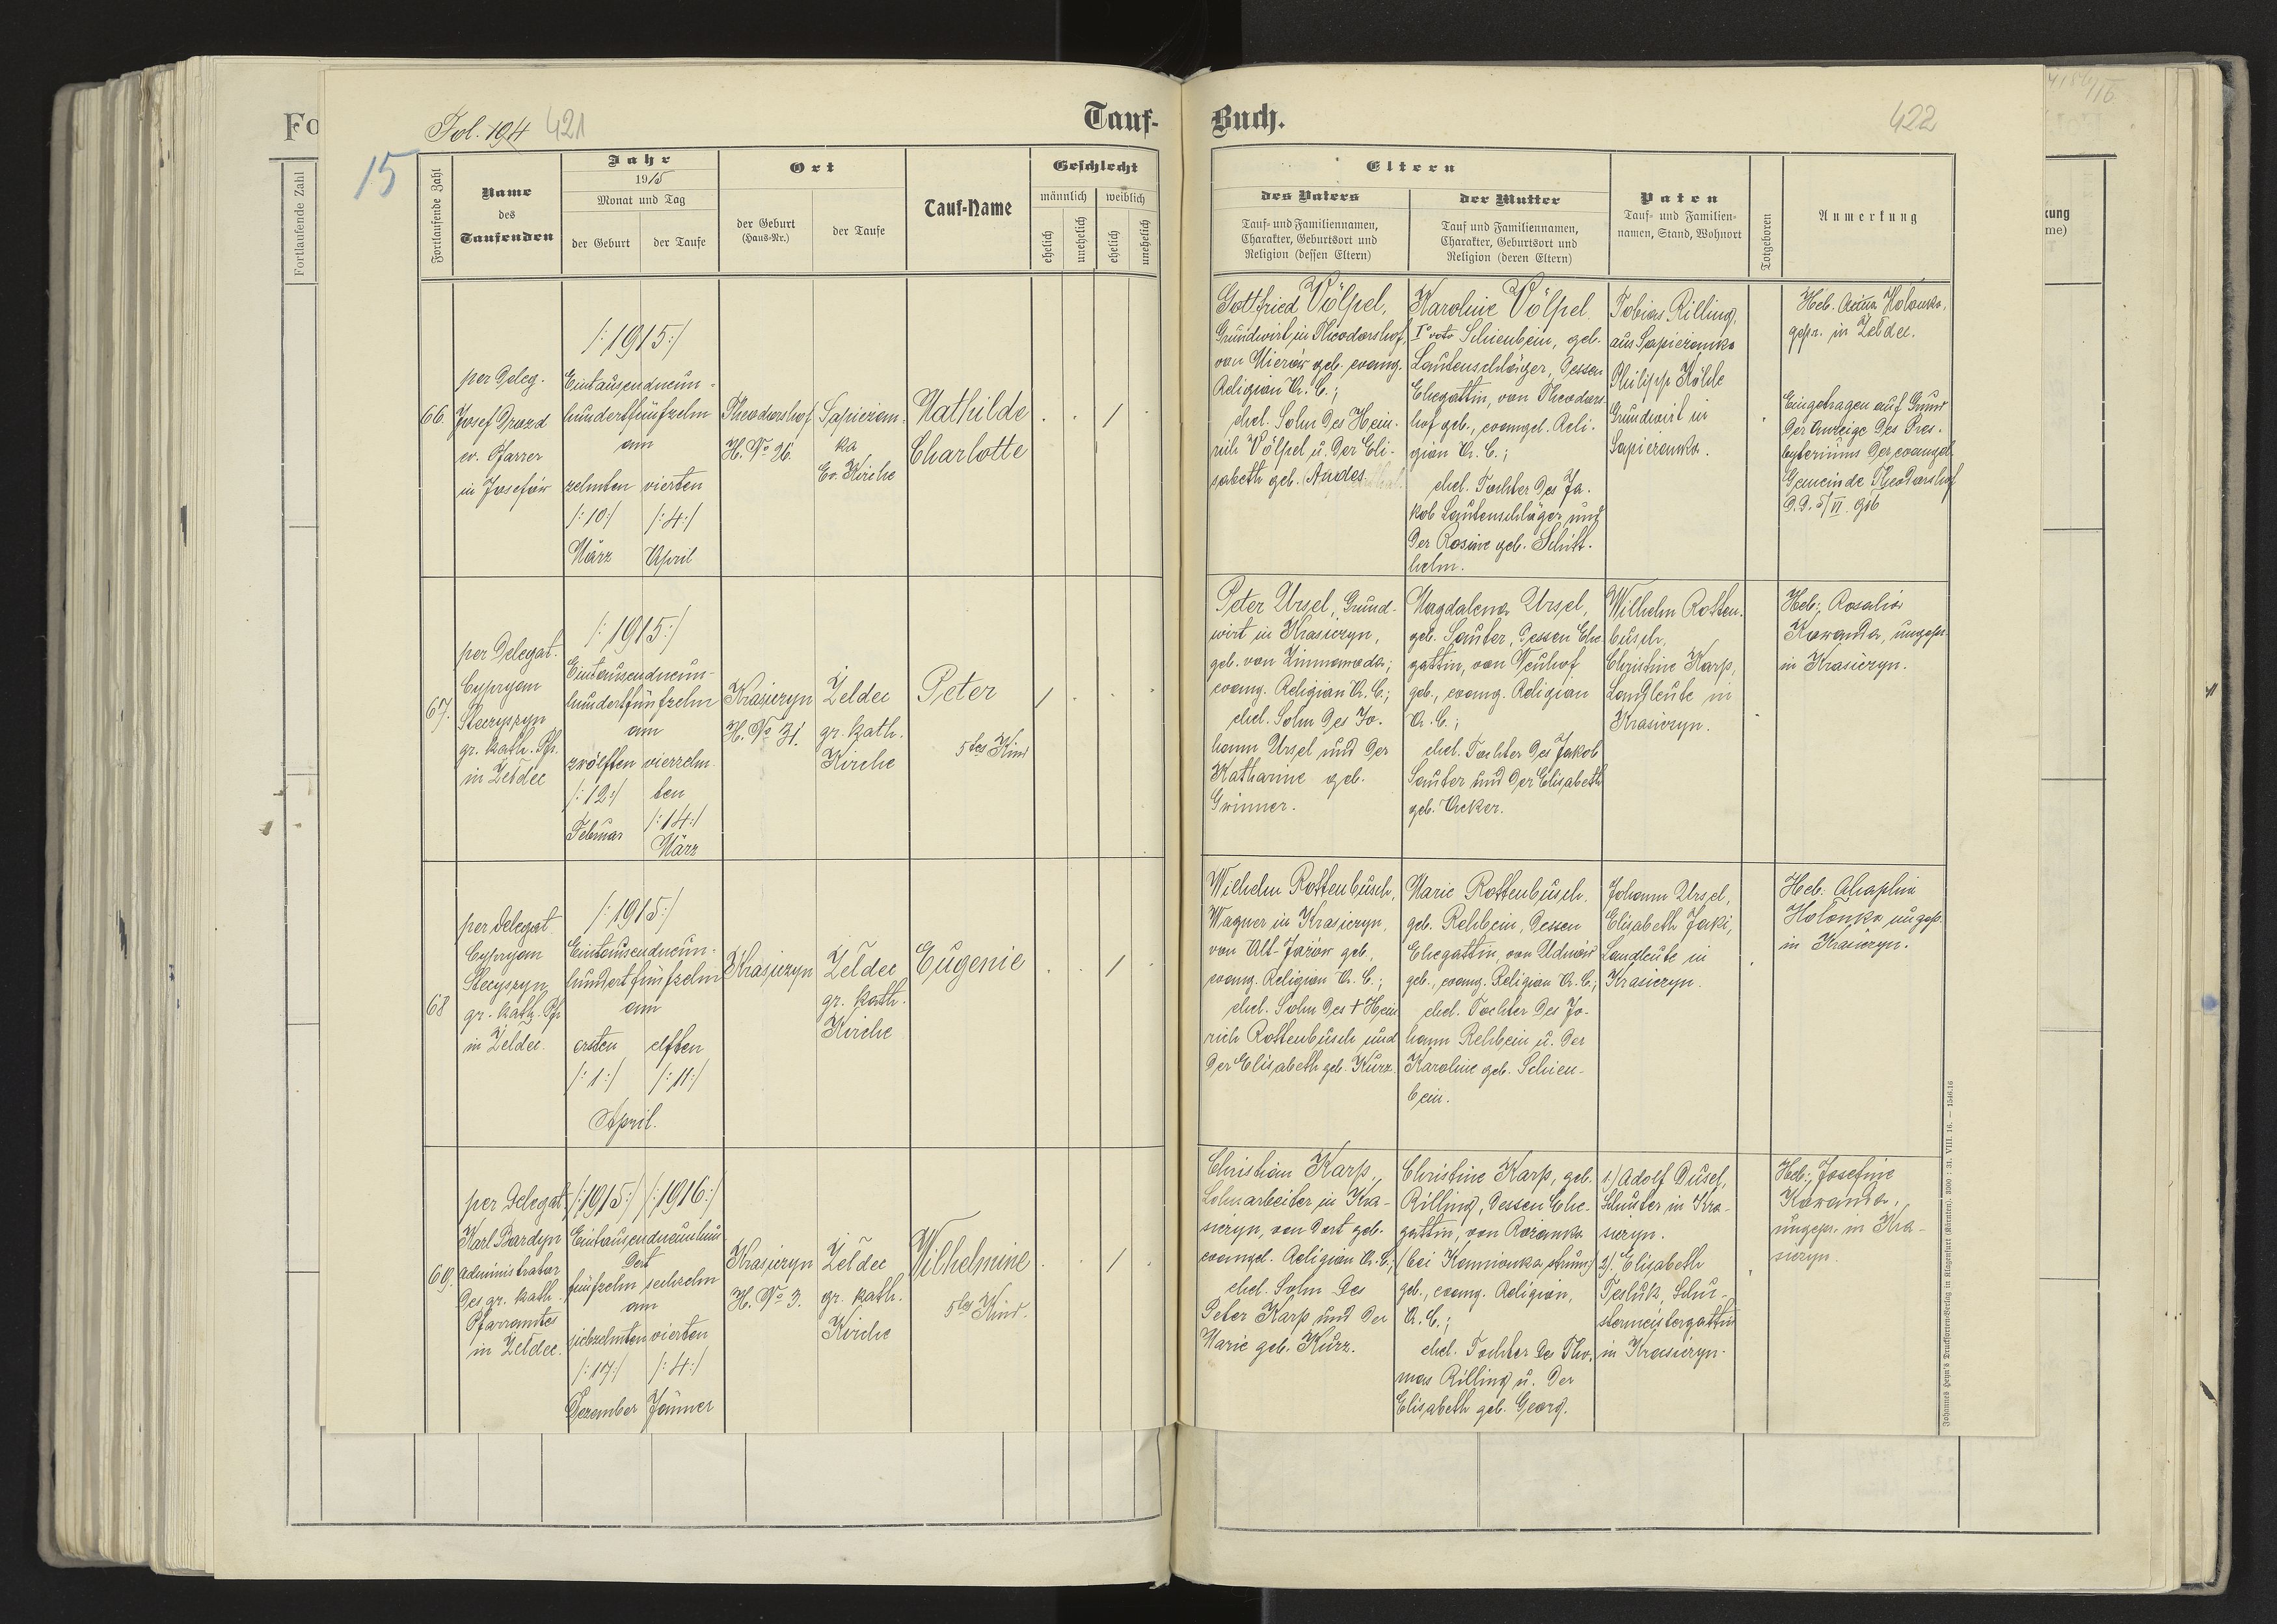 Tauf-
Buch.
Fol. 194 421
422
15
Fo
Fortlaufende Zahl
Fortlaufende Zahl
Name
des
Taufenden
Jahr
1915
Monat und Tag
der Geburt
der Taufe
Ort
der Geburt
(Haus-Nr.)
der Taufe
Tauf-Name
Geschlecht
männlich
weiblich
ehelich
unehelich
ehelich
unehelich
Eltern
des Vaters
Tauf- und Familiennamen,
Charakter, Geburtsort und
Religion (dessen Eltern)
der Mutter
Tauf und Familiennamen,
Charakter, Geburtsort und
Religion (deren Eltern)
Paten
Tauf- und Familien-
namen, Stand, Wohnort
Totgeboren
Anmerkung
kung
me)
66.
per Deleg.
Josef Drozd
ev. Pfarrer
in Josefów
/:1915:/
Eintausendneun-
hundertfünfzehn
am
zehnten vierten
/:10:/ /:4:/
März April
Theodorshof
H. No 26.
Sapiezan-
ka
Ev. Kirche
Mathilde
Charlotte
/
Gottfried Völpel,
Grundwirt in Theodorshof,
von Mierów geb. evang.
Religion A. C.;
ehel. Sohn des Hein-
rich Völpel u. der Eli-
sabeth geb. Andes
Karoline Völpel
Io voto Schienbein, geb.
Lautenschläger, dessen
Ehegattin, von Theodors-
hof geb., evangel. Reli-
gion A. C.;
ehel. Tochter des Ja-
kob Lautenschläger und
der Rosine geb. Schitt-
helm.
Tobias Rilling,
aus Sapiezanka
Philipp Kölle
Grundwirt in
Sapiezanka.
Heb. Holonka,
gepr. in Żeldec.
Eingetragen auf Grund
der Anzeige des Pres-
byteriums der evangel.
Gemeinde Theodorshof
d. d. 5/VI. 916
67.
per Delegat.
Cypryan
Steczyszyn
gr. kath. Pfr.
in Żeldec
/:1915:/
Eintausendneun-
hundertfünfzehn
am
zwölften vierzehn-
/:12:/ ten
Februar /:14:/
März
Krasiczyn
H. No 31.
Żeldec
gr. kath.
Kirche
Peter
5tes Kind
/
Peter Ursel, Grund-
wirt in Krasiczyn,
geb. von Zimnawoda;
evang. Religion A. C.;
ehel. Sohn des Jo-
hann Ursel und der
Katharine geb.
Grinner.
Magdalena Ursel,
geb. Sauter, dessen Ehe-
gattin, von Neuhof
geb., evang. Religion
A. C.;
ehel. Tochter des Jakob
Sauter und der Elisabeth
geb. Acker.
Wilhelm Rotten-
busch,
Christine Karp,
Landleute in
Krasiczyn.
Heb: Rosalia
Kawanda, ungepr.
in Krasiczyn.
68
per Delegat
Cypryan
Steczyszyn
gr. kath. Pfr
in Żeldec.
/:1915:/
Eintausendneun-
hundertfünfzehn
am
ersten elften
/:1:/ /:11:/
April.
Krasiczyn
Żeldec
gr. kath.
Kirche
Eugenie
/
Wilhelm Rottenbusch,
Wagner in Krasiczyn,
von Alt-Jażów geb.
evang. Religion A. C.;
ehel. Sohn des † Hein
rich Rottenbusch und
der Elisabeth geb. Kurz.
Marie Rottenbusch.
geb. Rehbein, dessen
Ehegattin, von Udnów
geb., evang. Religion A. C;
ehel. Tochter des Jo-
hann Rehbein u. der
Karoline geb. Schien-
bein.
Johann Ursel,
Elisabeth Jaki,
Landleute in
Krasiczyn.
Heb:
Holonka ungepr.
in Krasiczyn.
69.
per Delegat
Karl Bardyn
Administrator
des gr. kath.
Pfarramtes
in Żeldec.
/:1915:/ /:1916:/
Eintausendneunhun
dert
fünfzehn sechzehn
am
siebzehnten vierten
/:17:/ /:4:/
Dezember Jänner
Krasiczyn
H. No 3.
Żeldec
gr. kath.
Kirche
Wilhelmine
5tes Kind.
/
Christian Karp,
Lohnarbeiter in Kra-
siczyn, von dort geb.
evangel. Religion A. C;
ehel. Sohn des
Peter Karp und der
Marie geb. Kurz.
Christine Karp, geb.
Rilling, dessen Ehe-
gattin, von Rożanka
(bei Kamionka strum.)
geb., evang. Religion,
A. C.;
ehel. Tochter des Tho-
mas Rilling u. der
Elisabeth geb. Georg.
1./ Adolf Dusel,
Schuster in Kra-
siczyn.
2/. Elisabeth
Tesluk, Schu-
stermeistergattin
in Krasiczyn.
Heb: Josefine
Kawanda,
ungepr. in Kra-
siczyn.
Johannes Heyn's Drucksorten-Verlag in Klagenfurt (Kärnten). 3000 : 31. VIII. 16. — 1546.16